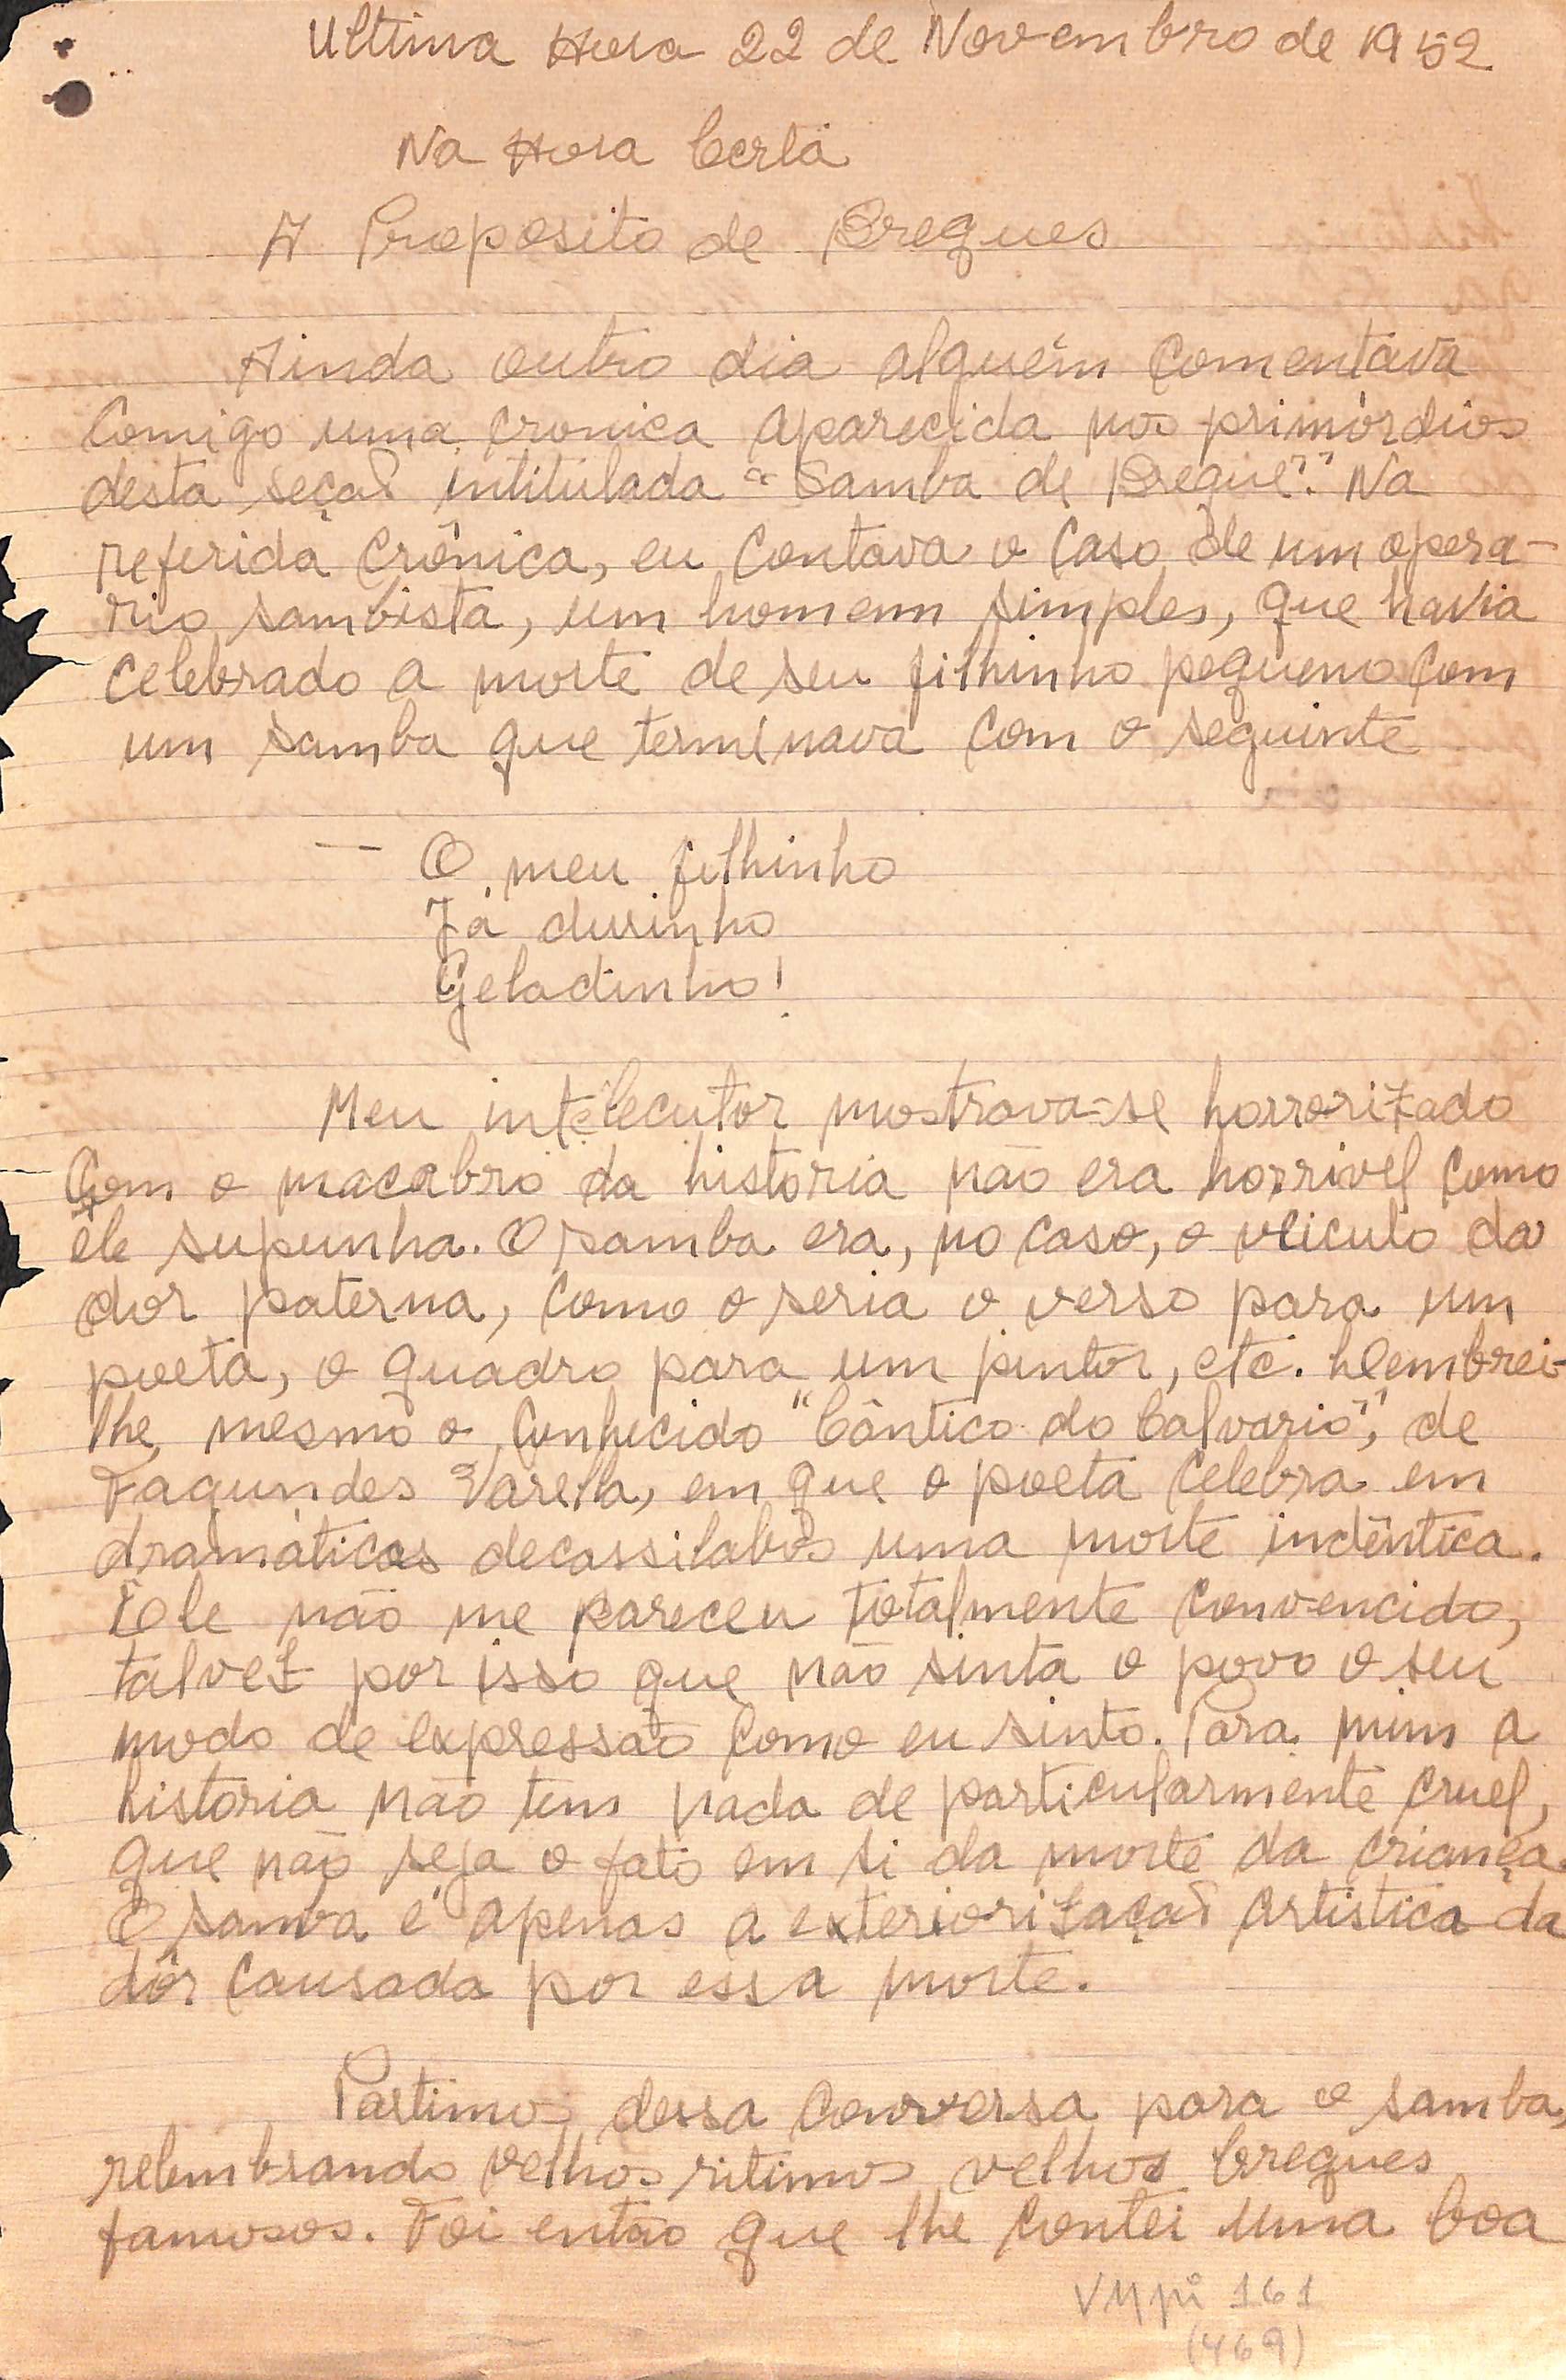 Ultima Hora 22 de Novembro de 1952
Na Hora Certa
A Proposito de Breques
Ainda outro dia alguém comentava
comigo uma cronica aparecida nos primórdios
desta seção intitulada "Samba de Breque". Na
referida crônica, eu contava o caso de um opera-
rio sambista, um homem simples, que havia
celebrado a morte de seu filhinho pequeno com
um samba que terminava com o seguinte
— O meu filhinho
Já durinho
Geladinho!
Meu intelecutor mostrava-se horrorizado
com o macabro da historia não era horrivel como
êle supunha. O samba era, no caso, o veiculo da
dor paterna, como o seria o verso para um
poeta, o quadro para um pintor, etc. Lembrei-
lhe, mesmo o conhecido "Cântico do Calvario", de
Fagundes Varella, em que o poeta celebra em
dramáticos decassilabos uma morte indêntica.
Êle não me pareceu totalmente convencido,
talvez por isso que não sinta o povo o seu
modo de expressão como eu sinto. Para mim a
historia não tem nada de particularmente cruel,
que não seja o fato em si da morte da criança.
O samba é apenas a exteriorização artistica da
dôr causada por essa morte.
Partimos dessa conversa para o samba,
relembrando velhos ritimos velhos breques
famosos. Foi então que lhe contei uma boa
VMpi 161
(469)